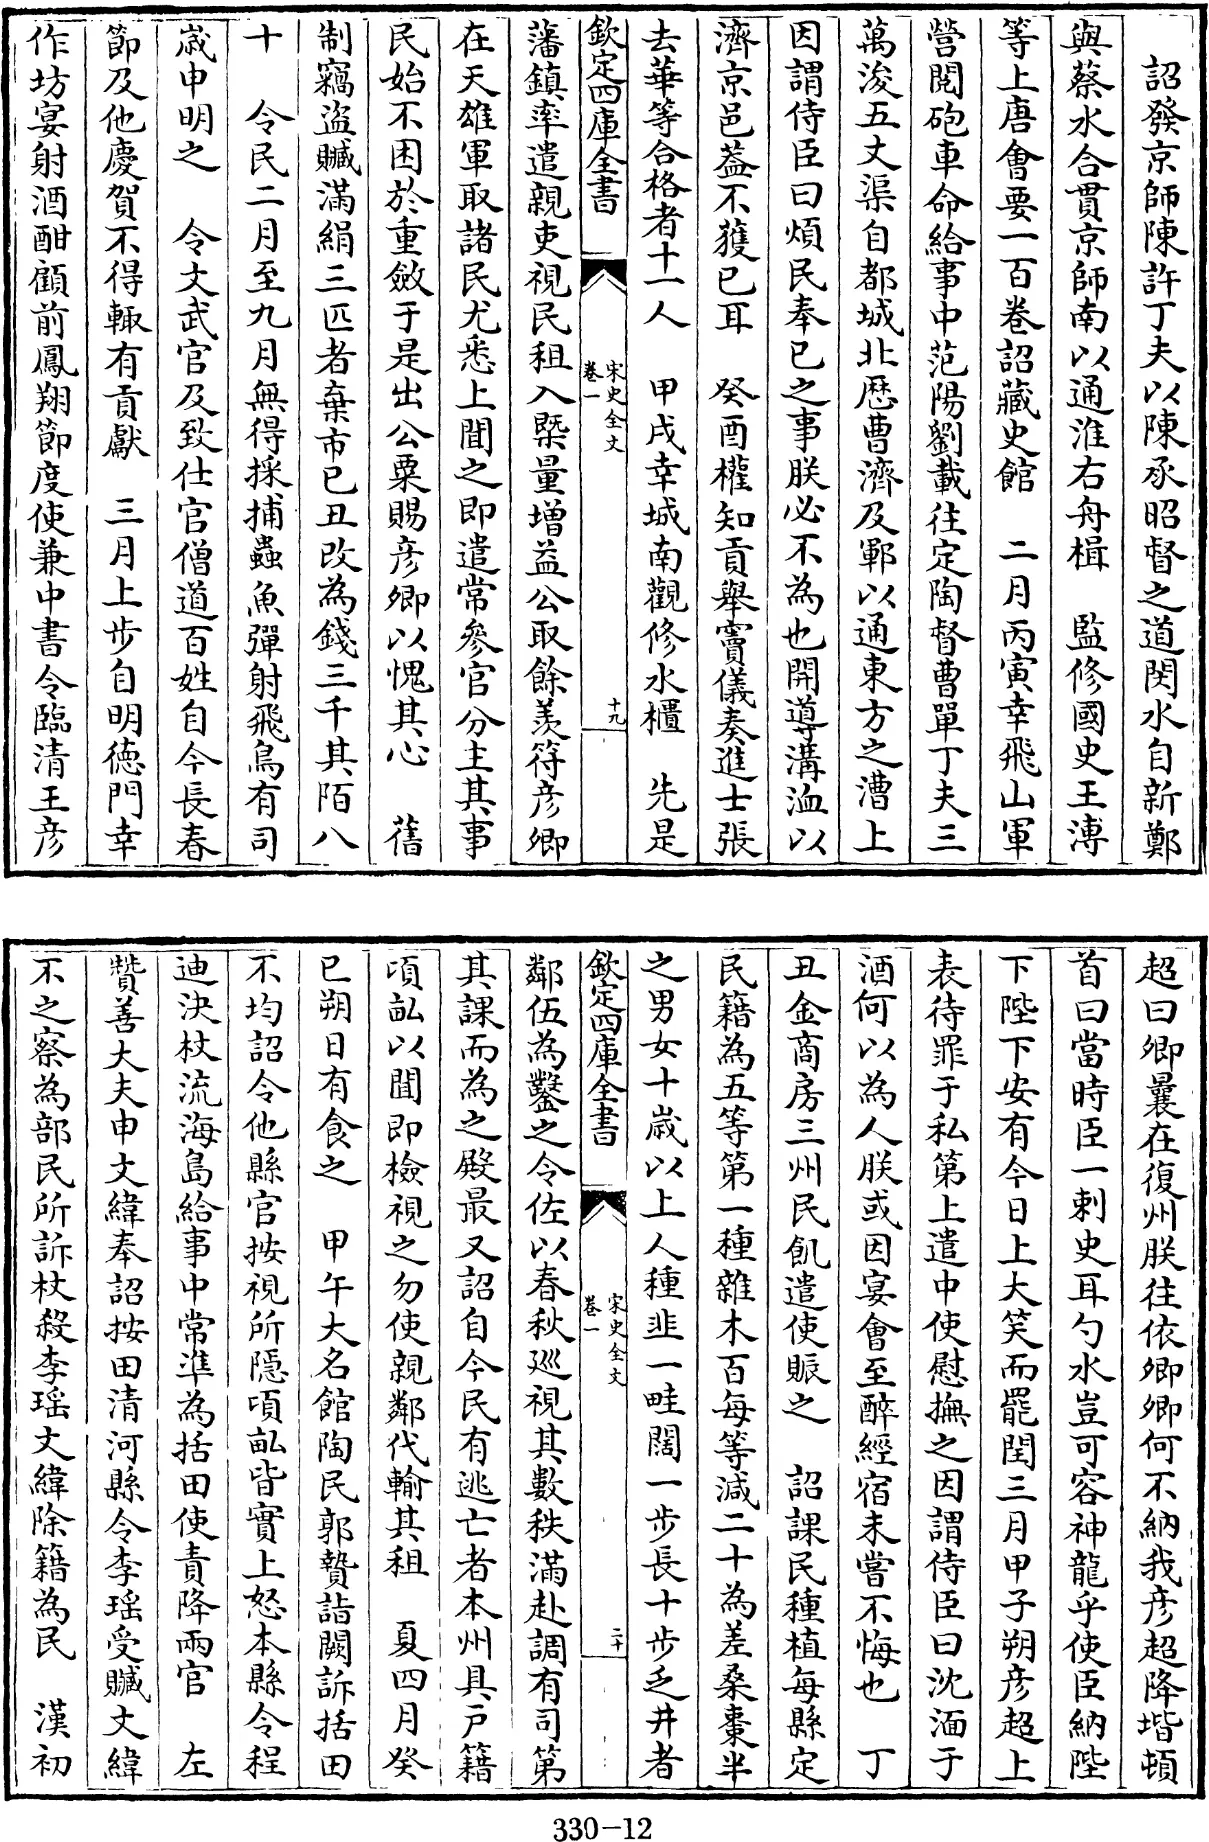 詔發京師陳許丁夫以陳承昭督之道閔水自新鄭
與蔡水合貫京師南以通淮右舟楫　監修國史王溥
等上唐會要一百卷詔藏史館　二月丙寅幸飛山軍
營閱砲車命給事中范陽劉載往定陶督曹單丁夫三
萬浚五丈渠自都城北歷曹濟及鄆以通東方之漕上
因謂侍臣曰煩民奉已之事朕必不為也開導溝洫以
濟京邑葢不獲已耳　癸酉權知貢舉竇儀奏進士張
去華等合格者十一人　甲戌幸城南觀修水櫃　先是
欽定四庫全書
宋史全文
卷一
十九
藩鎮率遣親吏視民租入槩量增益公取餘羨符彦卿
在天雄軍取諸民尤悉上聞之即遣常參官分主其事
民始不困於重斂于是出公粟賜彦卿以愧其心　舊
制竊盜贓滿絹三匹者棄市已丑改為錢三千其陌八
十　令民二月至九月無得採捕蟲魚彈射飛鳥有司
嵗申明之　令文武官及致仕官僧道百姓自今長春
節及他慶賀不得輙有貢獻　三月上步自明德門幸
作坊宴射酒酣顧前鳳翔節度使兼中書令臨清王彦
超曰卿曩在復州朕往依卿卿何不納我彦超降堦頓
首曰當時臣一刺史耳勺水豈可容神龍乎使臣納陛
下陛下安有今日上大笑而罷閏三月甲子朔彦超上
表待罪于私第上遣中使慰撫之因謂侍臣曰沈湎于
酒何以為人朕或因宴會至醉經宿未嘗不悔也　丁
丑金商房三州民飢遣使賑之　詔課民種植每縣定
民籍為五等第一種雜木百每等減二十為差桑棗半
之男女十嵗以上人種韭一畦闊一步長十步乏井者
欽定四庫全書
宋史全文
卷一
二十
鄰伍為鑿之令佐以春秋廵視其數秩滿赴調有司第
其課而為之殿最又詔自今民有逃亡者本州具戸籍
頃畝以聞即檢視之勿使親鄰代輸其租　夏四月癸
已朔日有食之　甲午大名館陶民郭贄詣闕訴括田
不均詔令他縣官按視所隱頃畝皆實上怒本縣令程
迪決杖流海島給事中常準為括田使責降兩官　左
贊善大夫申文緯奉詔按田清河縣令李瑶受贓文緯
不之察為部民所訴杖殺李瑶文緯除籍為民　漢初
330-12